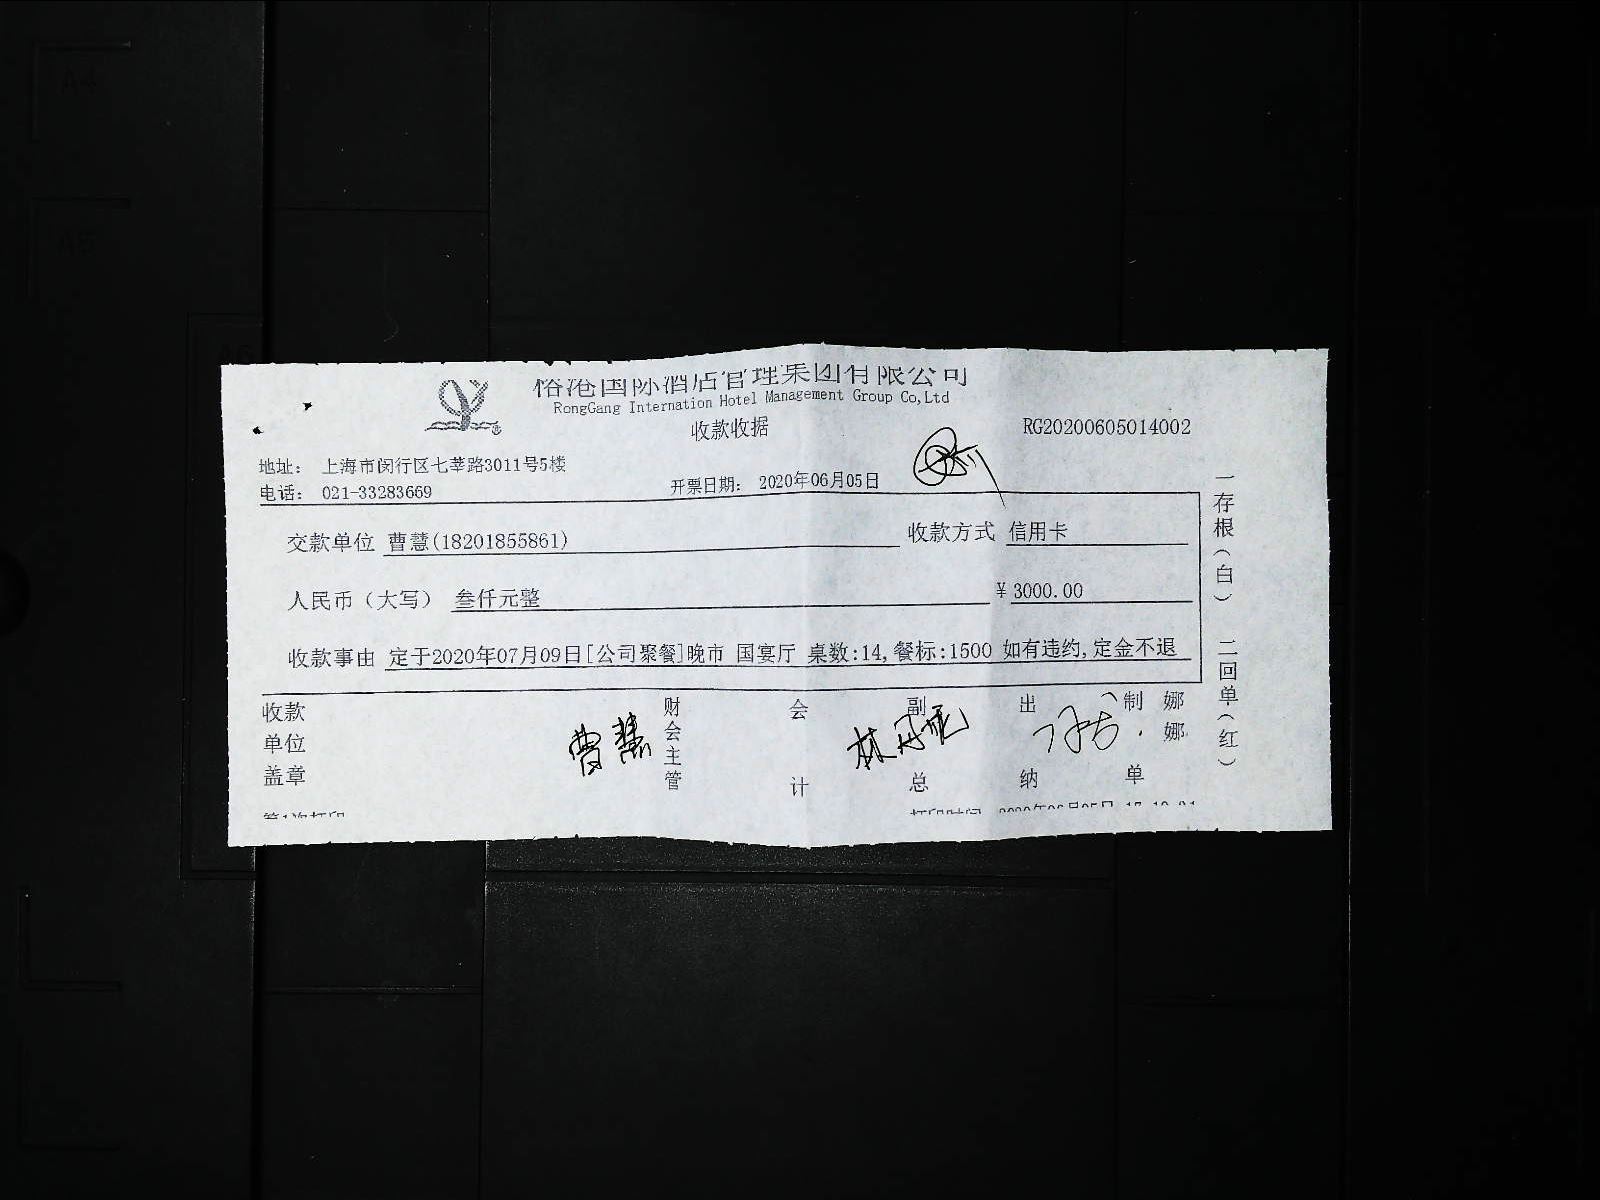 国际酒店管理集团有限公司
RongGang Internation Hotel Management Group Co,Ltd
收款收据
RG20200605014002
地址： 上海市闵行区七莘路3011号5楼
电话： 021-33283669
开票日期： 2020年06月05日
交款单位 曹慧(18201855861)
收款方式 信用卡
人民币（大写） 叁仟元整
¥ 3000.00
收款事由 定于2020年07月09日[公司聚餐]晚市 国宴厅 桌数:14,餐标:1500 如有违约,定金不退
收款单位盖章
曹慧
财会主管
会计
副总
出纳
制单
娜娜
一存根（白） 二回单（红）
第1次打印
打印时间 2020年06月05日